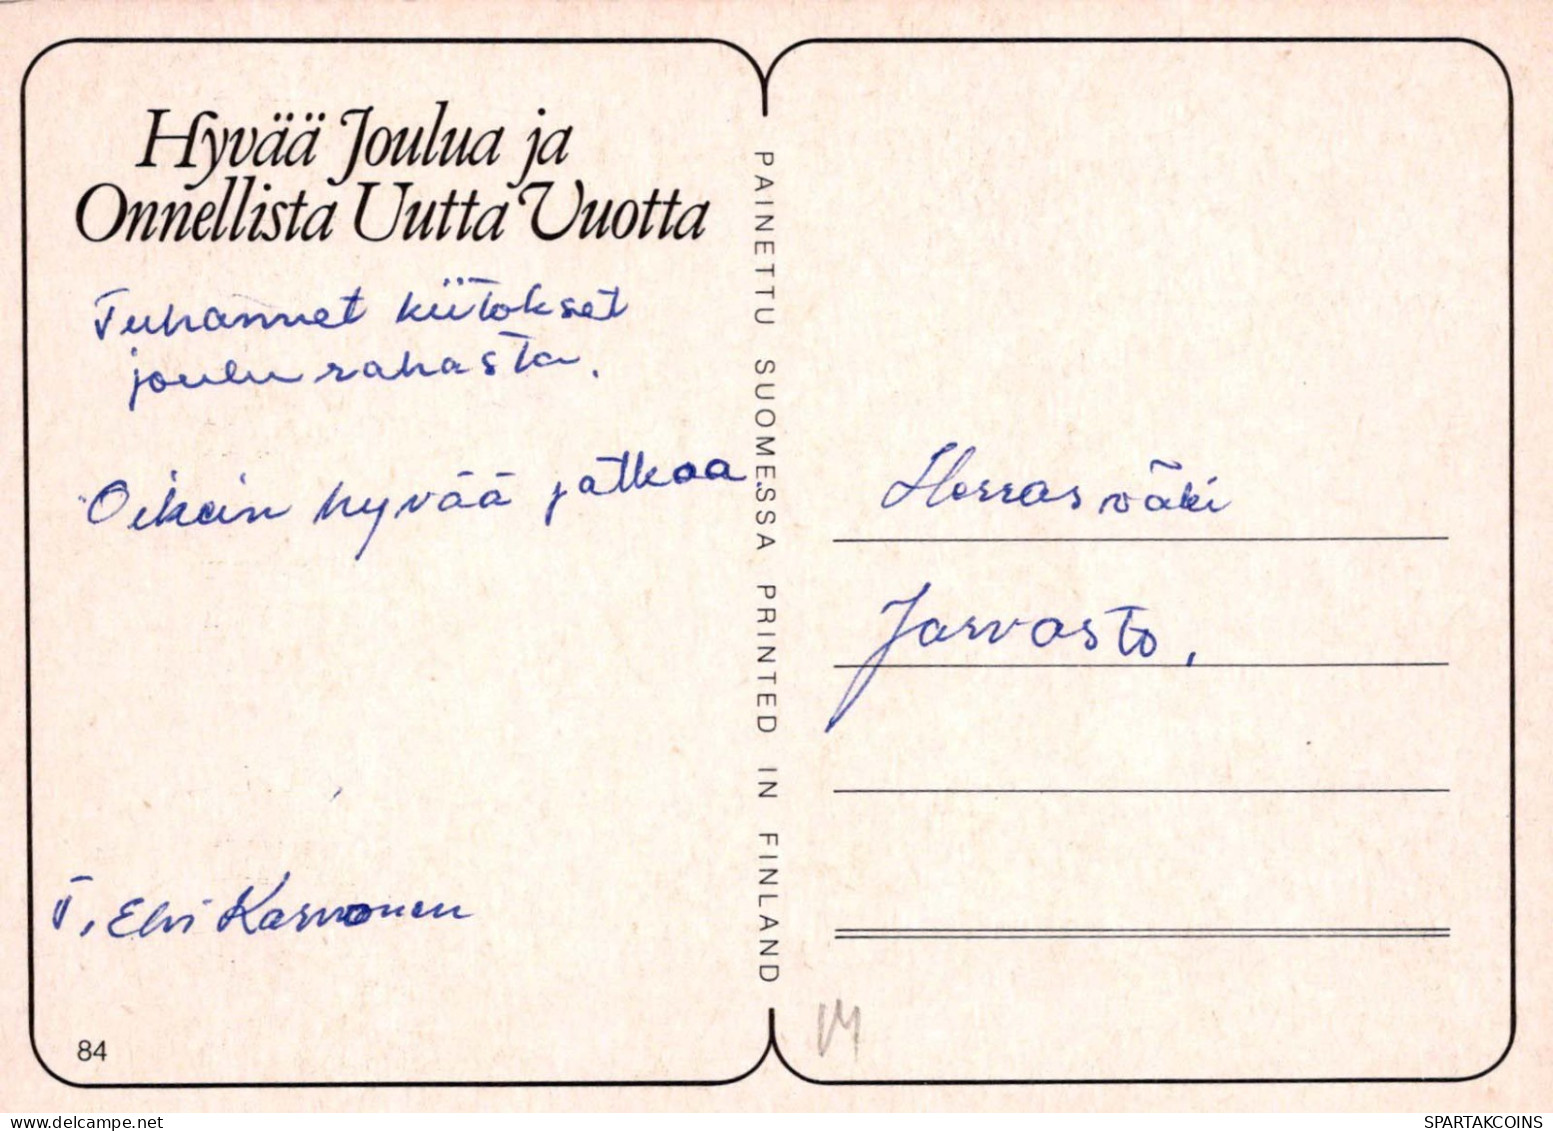 Hyvää Joulua ja
Onnellista Uutta Vuotta
Tuhannet kiitokset
joulurahasta.
Oikein hyvää jatkoa.
T. Elvi Karvonen
84
PAINETTU SUOMESSA PRINTED IN FINLAND
Herrasväki
Jarvasto.
delcampe.net
SPARTAKCOINS